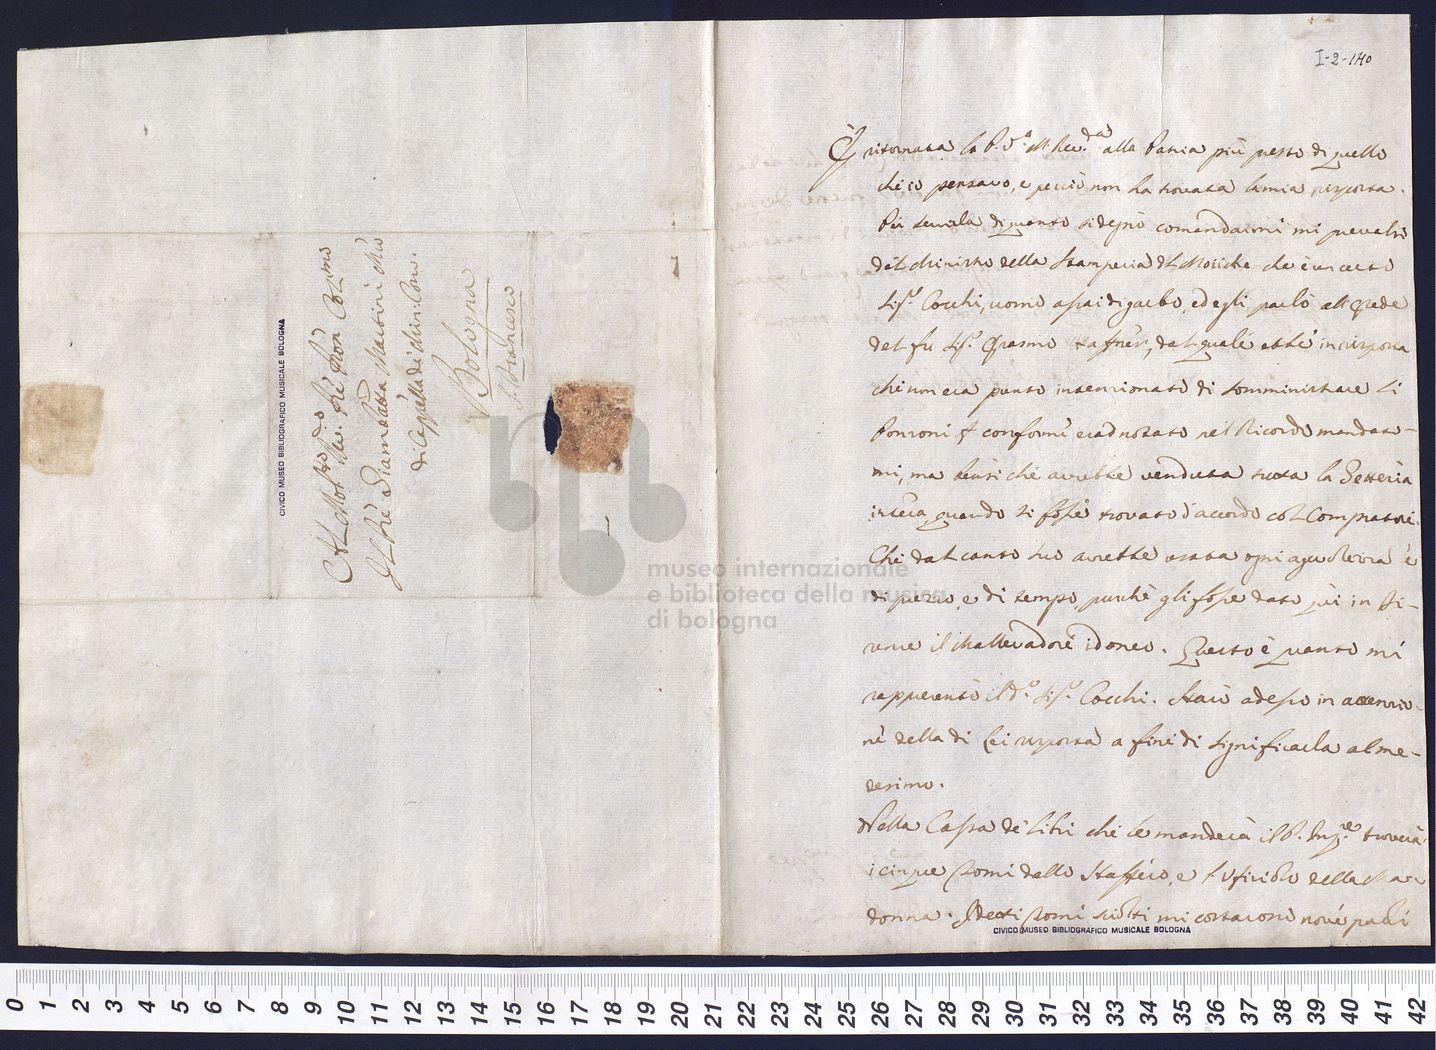 I-2-140
È ritornata la P. V.a M. Rev.da alla Patria più presto di quello
che io pensavo, e perciò non ha trovata la mia risposta.
Per servirla di quanto si degnò comandarmi mi prevalsi
del Ministro della Stamperia del Moücke che è un certo
Sig.r Cocchi, uomo assai di garbo, ed egli parlò all'Erede
del fu Sig.r Erasmo Haffner, dal quale ebbe in risposta
che non era punto intenzionato di somministrare li
Ponzoni conforme era notato nel Ricordo mandato-
mi, ma bensì che avrebbe venduta tutta la Getteria
intera quando si fosse trovato d'accordo col Compratore.
Che dal canto suo avrebbe usata ogni agevolezza e
di prezzo, e di tempo, purchè gli fosse dato qui in Fi-
renze il Mallevadore idoneo. Questo è quanto mi
rappresentò il d.o Sig.r Cocchi. Starò adesso in attenzio-
ne della di Lei risposta a fine di significarla al me-
desimo.
Nella Cassa de' libri che le manderà il P. troverà
i cinque Tomi dello Staffero, e l'Ufiziolo della Ma-
donna. I detti Tomi sciolti mi costarono nove paoli
Al Mol.to Rev. Pre Pron Col.mo
Il Pre Giambatta Martini Mro
di Cappella de' Min: Con.
Bologna
S. Francesco
CIVICO MUSEO BIBLIOGRAFICO MUSICALE BOLOGNA
CIVICO MUSEO BIBLIOGRAFICO MUSICALE BOLOGNA
museo internazionale
e biblioteca della musica
di bologna
0 1 2 3 4 5 6 7 8 9 10 11 12 13 14 15 16 17 18 19 20 21 22 23 24 25 26 27 28 29 30 31 32 33 34 35 36 37 38 39 40 41 42